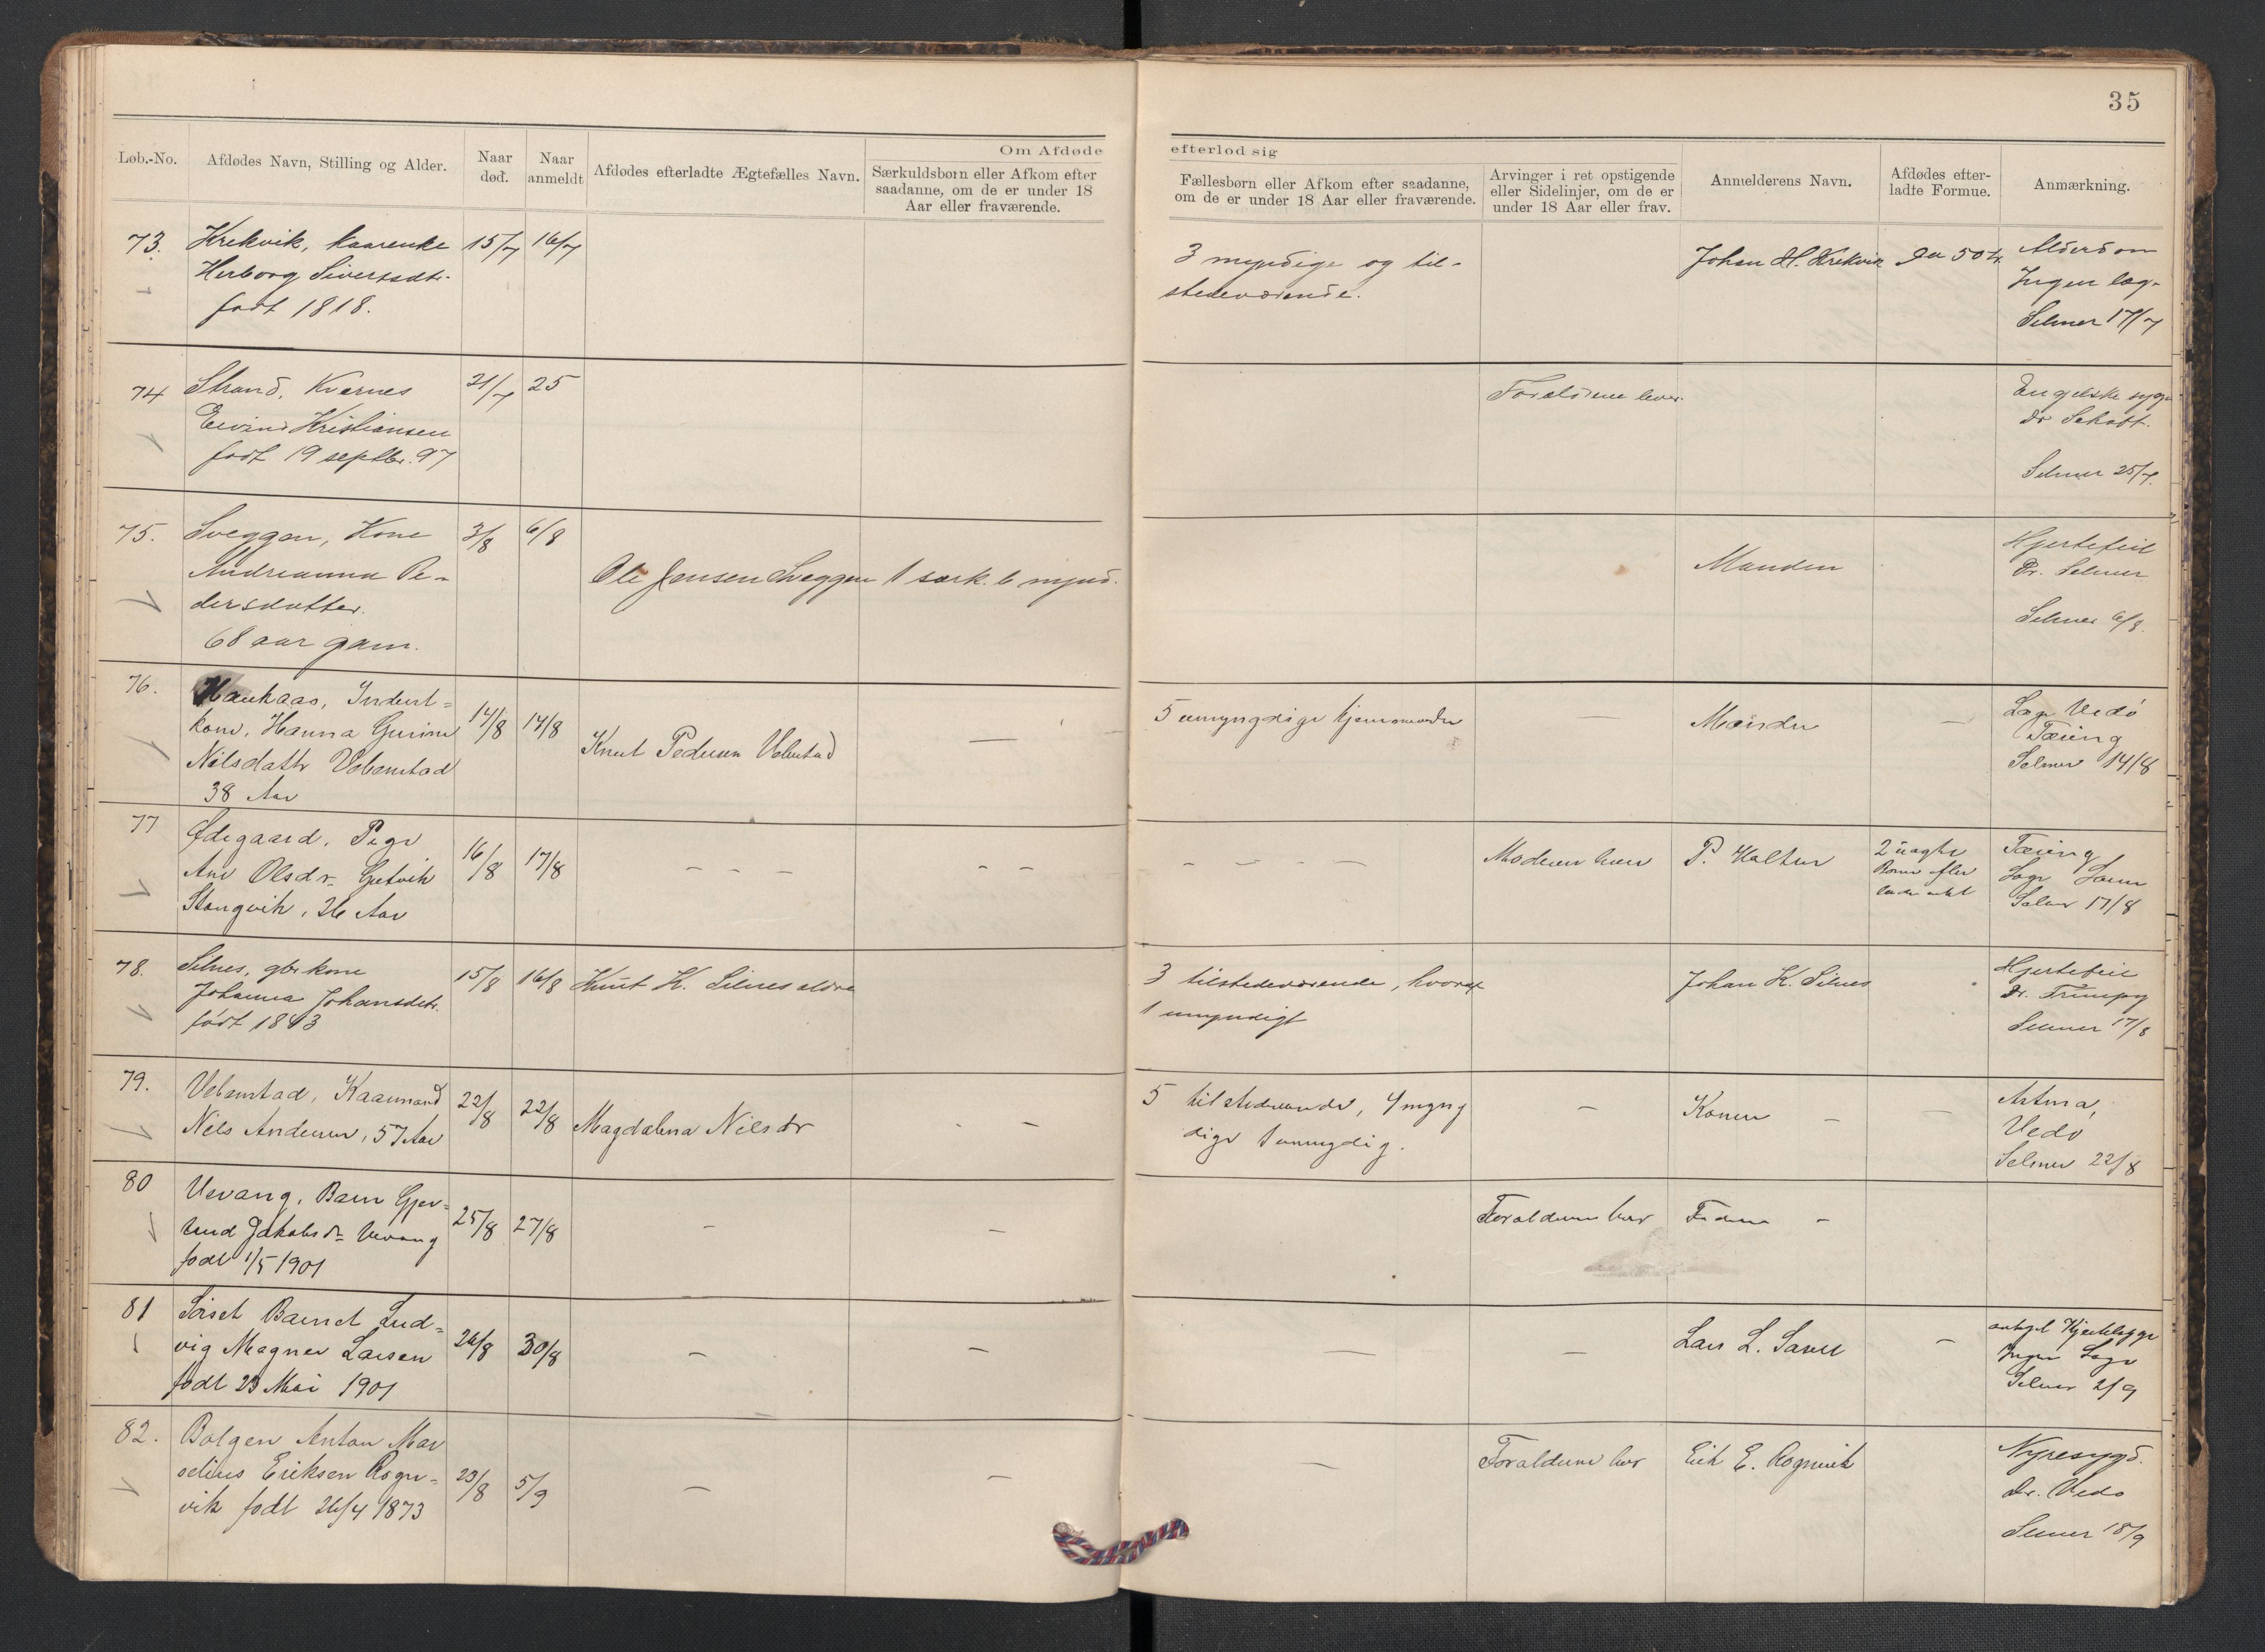 35
Løb.-No.
Afdødes Navn, Stilling og Alder.
Naar
død.
Naar
anmeldt
Afdødes efterladte Ægtefælles Navn.
Om Afdøde
Særkuldsbørn eller Afkom efter
saadanne, om de er under 18
Aar eller fraværende.
efterlod sig
Fællesbørn eller Afkom efter saadanne,
om de er under 18 Aar eller fraværende.
Arvinger i ret opstigende
eller Sidelinjer, om de er
under 18 Aar eller frav.
Anmelderens Navn.
Afdødes efter-
ladte Formue.
Anmærkning.
73. Krekvik, kaarenke 15/7 16/7
Herborg Sivertsdtr.
født 1818.
3 myndige og til-
stedeværende.
Johan H. Krekvik
50 kr.
Alderdom
Ingen læge
Selmer 17/7
74 Strand, Kvernes 21/7 25
Eivind Kristiansen
født 19 septbr. 97
Forældrene lever
Engelske syge
Dr Schøtt.
Selmer 25/7.
75. Sveggen, Kone 3/8 6/8
Andreanna Pe-
dersdatter.
68 aar gam.
Ole Jensen Sveggen
1 særk. b mynd.
Manden
Hjertefeil
Dr. Selmer
Selmer 6/8.
76. Haukaas, Inderst=
kone, Hanna Gurine 14/8 14/8
Nilsdattr Vebenstad
38 Aar
Knut Pedersen Vebenstad
—
5 umyngdige hjemmeværende
—
Manden
—
Læge Vedø
Tæring
Selmer 14/8
77 Ødegaard, Pige
Ane Olsdr. 16/8 17/8
Stangvik, 26 Aar
- - -
- -
- - - -
Moderen lever
P. Halten
2 uægte
Børn efter
Tæring
Læge
Selmer 17/8
78. Silnes, gbr kone 15/8 16/8
Johanna Johansdtr.
født 1843
Knut K. Silnes ældre
3 tilstedeværende, hvoraf
1 umyndigt
Johan K. Silnes
Hjertefeil
Dr. Trumpy
Selmer 17/8
79. Vebenstad, Kaarmand 22/8 22/8
Nils Andersen, 57 Aar
Magdalena Nilsdr
- -
5 tilstedeværende, 4 myng
dige 1 umyngdig.
—
Konen -
—
Astma,
Vedø
Selmer 22/8
80 Vevang, Barn Gjer=
trud Jakobsdr Vevang 25/8 27/8
født 1/5 1901
—
—
Forældrene lever
Faderen -
81 Sørset Barnet Lud=
vig Magner Larsen 26/8 30/8
født 23 Mai 1901
—
—
—
—
Lars L.
—
Ingen Læge
Selmer 2/9
82. Bolgen Anton Mar
selius Eriksen Rogn= 23/8 5/9
vik født 26/4 1873
—
—
—
Forældrene lever
Erik E. Rognvik
Nyresygd.
Dr. Vedø
Selmer 18/9